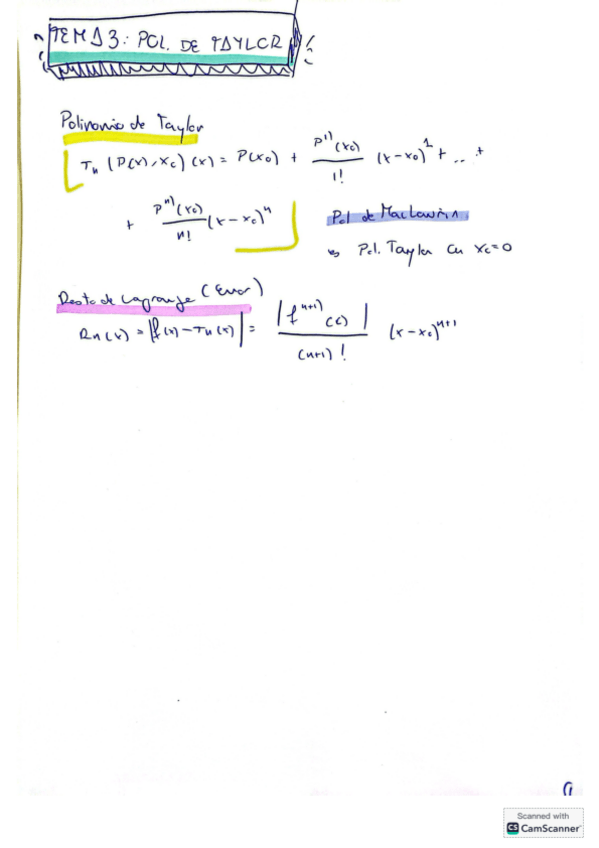 TEMA 3: POL. DE TAYLOR
Polinomio de Taylor
Tₙ (P(x), x₀) (x) = P(x₀) + P¹⁾(x₀) / 1! (x-x₀)¹ + ... +
+ Pⁿ⁾(x₀) / n! (x-x₀)ⁿ
Pol de MacLaurin
↳ Pol. Taylor en x₀=0
Resto de Lagrange (Error)
Rn(x) = |f(x) - Tn(x)| = |fⁿ⁺¹⁾(c)| / (n+1)! (x-x₀)ⁿ⁺¹
Scanned with
CS CamScanner